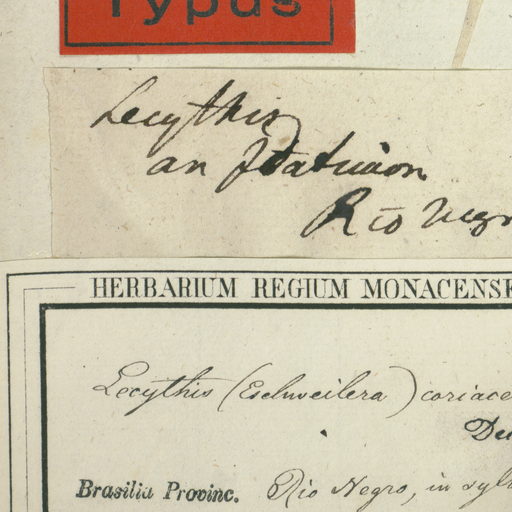 Typus
Lecythis
an Jatuicon
Rio Negr
HERBARIUM REGIUM MONACENSE
Lecythis (Eschweilera) coriace
De
Brasilia Provinc. Rio Negro, in sylv